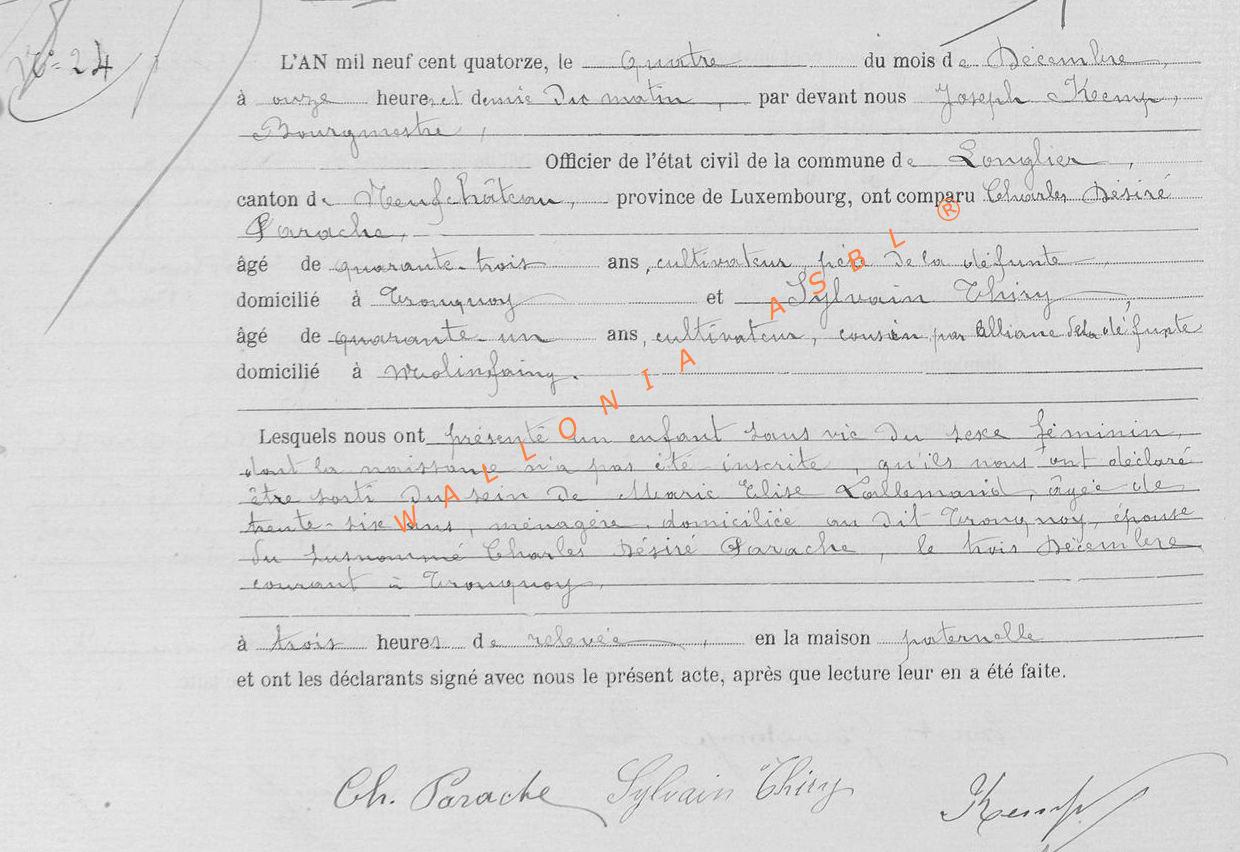 N° 24
L'AN mil neuf cent quatorze, le quatre du mois de Décembre,
à onze heures et demie du matin, par devant nous Joseph Kemp,
Bourgmestre,
Officier de l'état civil de la commune de Longlier,
canton de Neufchâteau, province de Luxembourg, ont comparu Charles Désiré
Parache,
âgé de quarante-trois ans, cultivateur, père de la défunte
domicilié à Tronquoy et Sylvain Thiry,
âgé de quarante-un ans, cultivateur, cousin par alliance de la défunte
domicilié à Molinfaing.
Lesquels nous ont présenté un enfant sans vie du sexe féminin,
dont la naissance n'a pas été inscrite, qu'ils nous ont déclaré
être sorti du sein de Marie Elise Lallemand, âgée de
trente-six ans, ménagère, domiciliée au dit Tronquoy, épouse
du susnommé Charles Désiré Parache, le trois Décembre
courant à Tronquoy,
à trois heures de relevée, en la maison paternelle
et ont les déclarants signé avec nous le présent acte, après que lecture leur en a été faite.
Ch. Parache Sylvain Thiry Kemp
WALLONIA ASBL ®